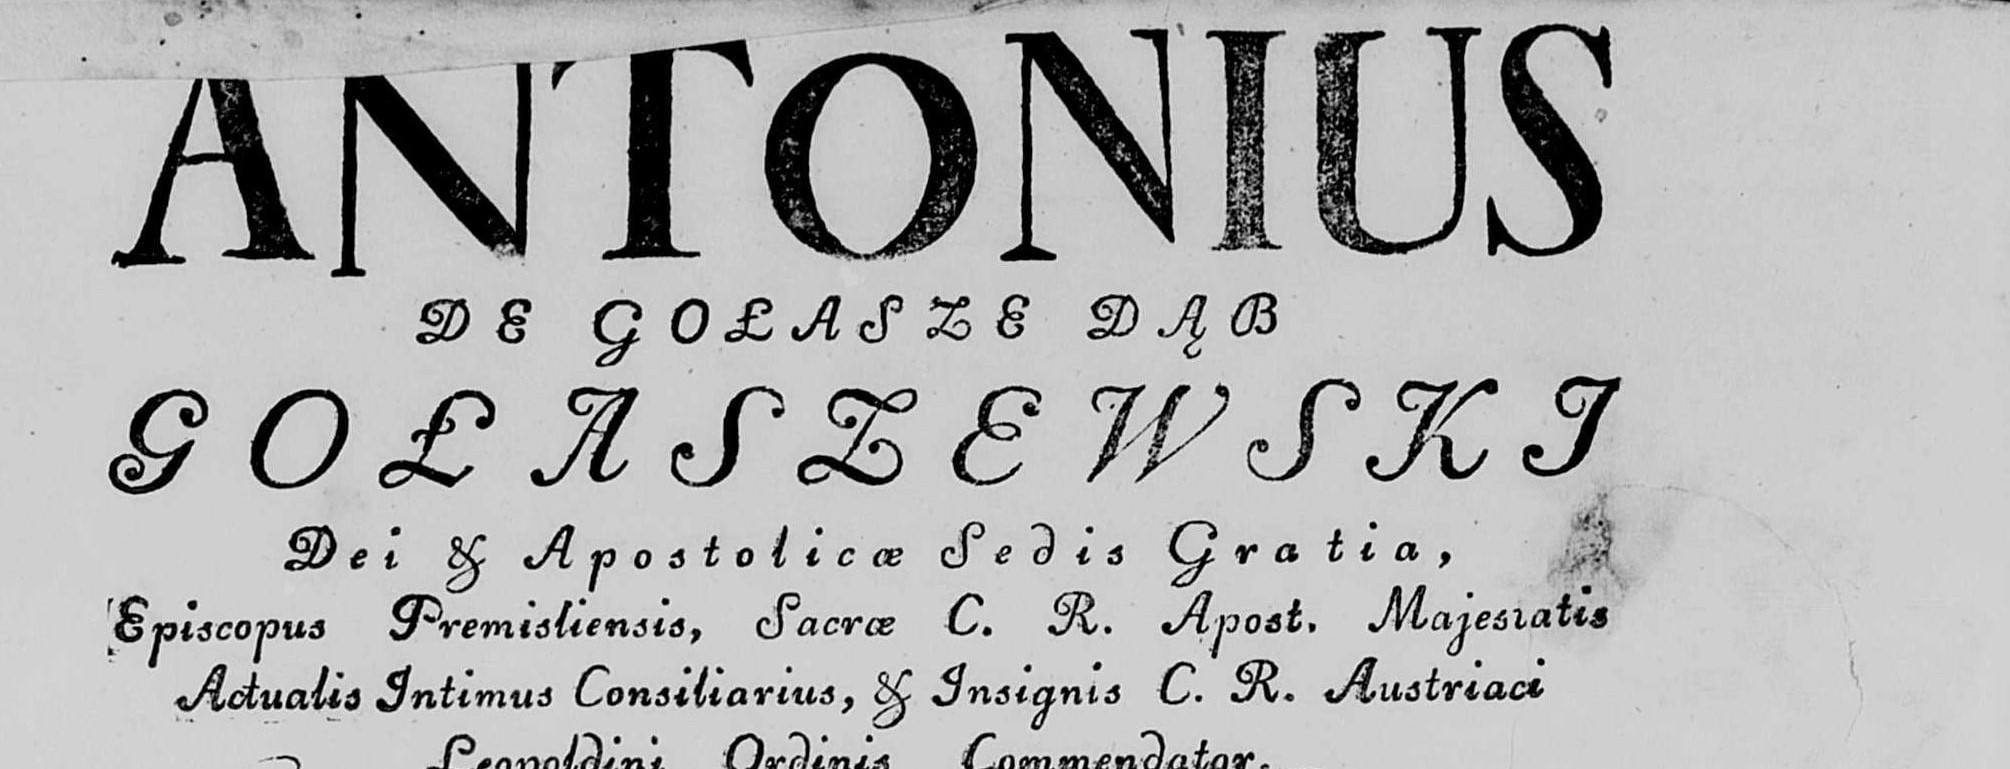 ANTONIUS
DE GOŁASZE DĄB
GOŁASZEWSKI
Dei & Apostolicæ Sedis Gratia,
Episcopus Premisliensis, Sacræ C. R. Apost. Majestatis
Actualis Intimus Consiliarius, & Insignis C. R. Austriaci
Leopoldini Ordinis Commendator.